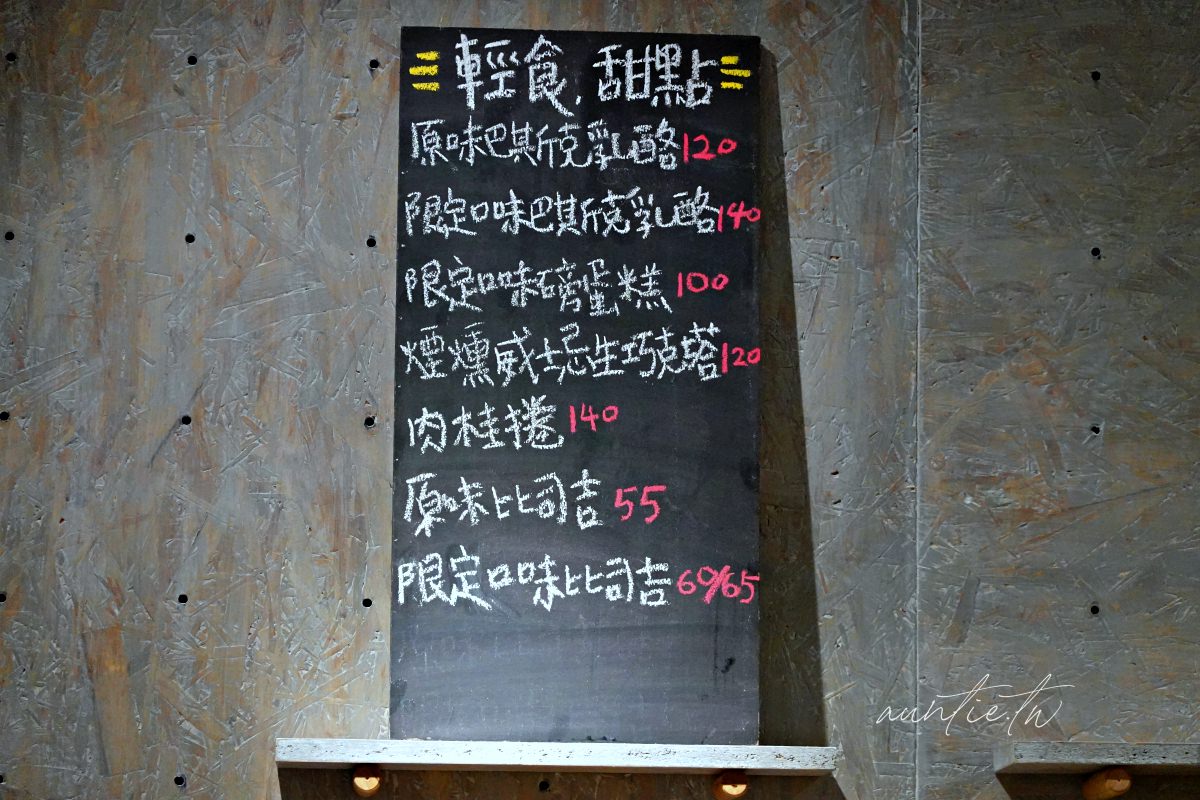 輕食.甜點
原味巴斯克乳酪120
限定口味巴斯克乳酪140
限定口味磅蛋糕 100
煙燻威士忌生巧克塔120
肉桂捲 140
原味比司吉 55
限定口味比司吉 60/65
auntie.tw